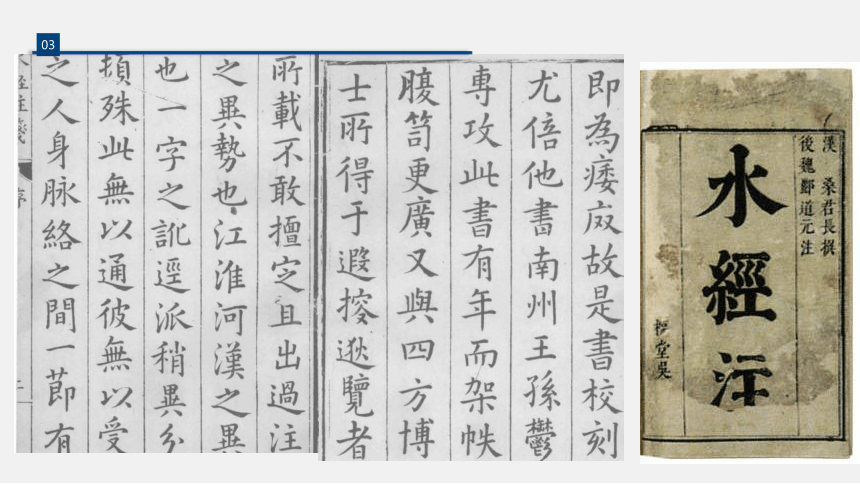 03
即為痿故是書校刻
尤倍他書南州王孫鬱
專攻此書有年而架帙
腹笥更廣又與四方博
士所得于遐搜逖覽者
所載不敢擅定且出過注
之異勢也江淮河漢之異
也一字之訛逕派稍異分
頓殊此無以通彼無以受
之人身脉絡之間一節有
水經注箋
序
漢 桑君長撰
後魏酈道元注
水經注
堂吳